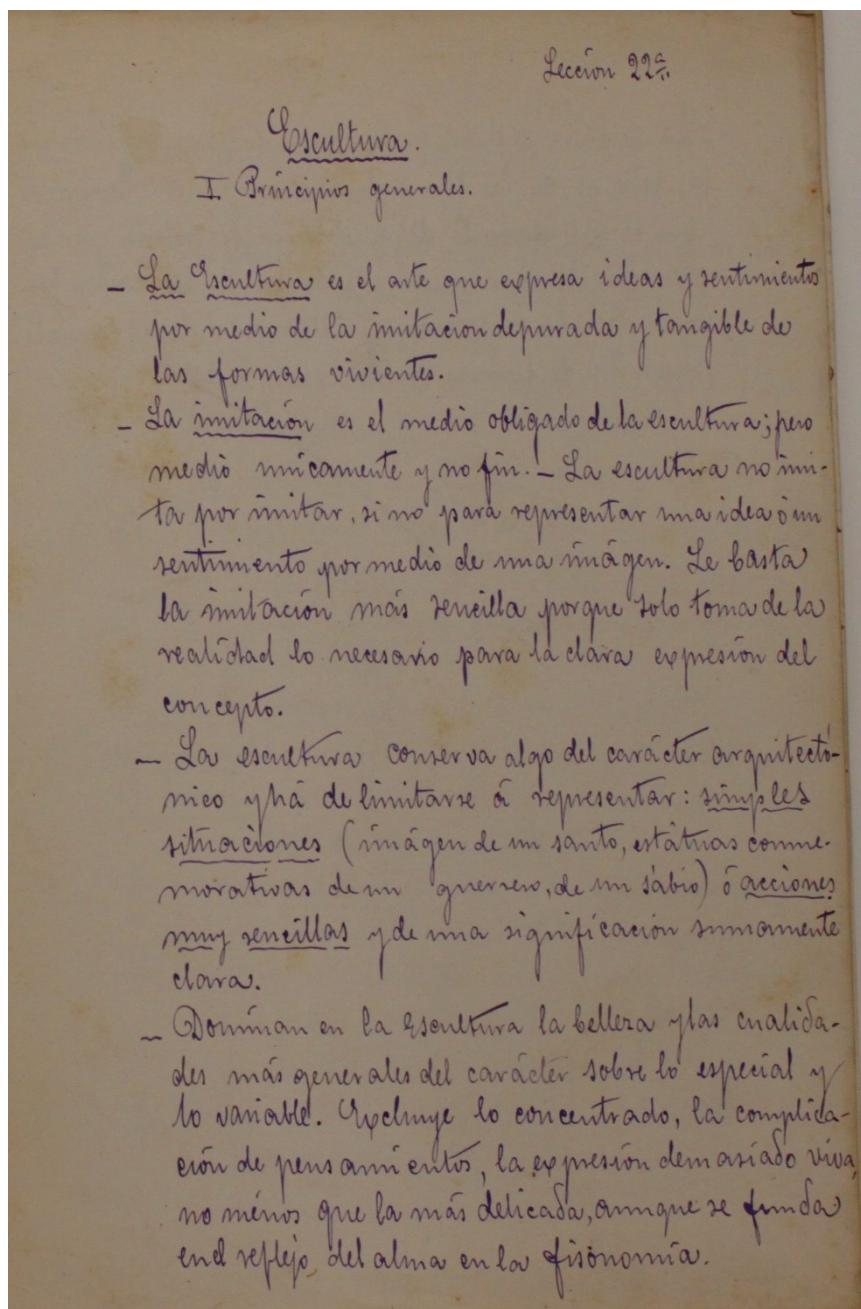 Lección 22ª
Escultura.
I Principios generales.
- La Escultura es el arte que expresa ideas y sentimientos
por medio de la imitacion depurada y tangible de
las formas vivientes.
- La imitación es el medio obligado de la escultura; pero
medio unicamente y no fin. - La escultura no imi-
ta por imitar, si no para representar una idea ó un
sentimiento por medio de una imágen. Le basta
la imitación más sencilla porque solo toma de la
realidad lo necesario para la clara expresión del
concepto.
- La escultura conserva algo del carácter arquitectó-
nico y há de limitarse á representar: simples
situaciones (imágen de un santo, estátuas conme-
morativas de un guerrero, de un sábio) ó acciones
muy sencillas y de una significación sumamente
clara.
- Dominan en la Escultura la belleza y las cualida-
des más generales del carácter sobre lo especial y
lo variable. Excluye lo concentrado, la complica-
ción de pensamientos, la expresión demasiado viva,
no ménos que la más delicada, aunque se funda
en el reflejo del alma en la fisonomía.